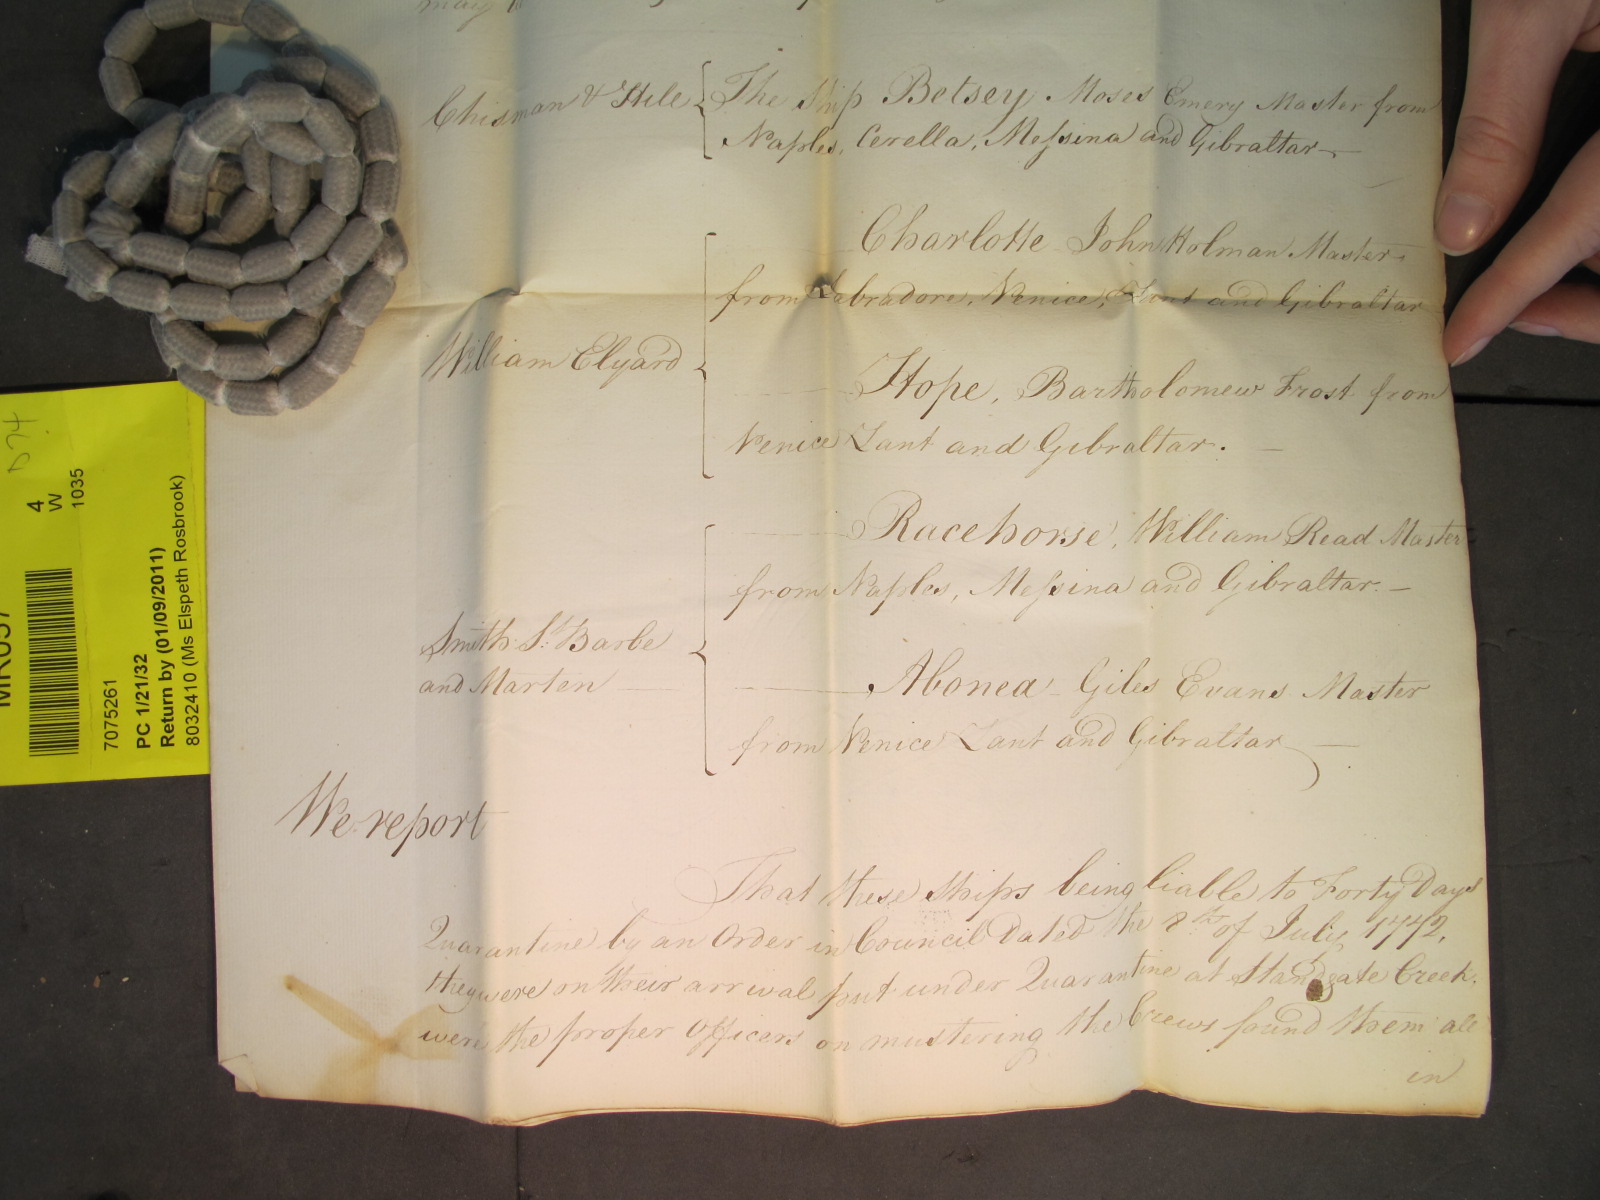 Chisman & Hile The Ship Betsey Moses Emery Master from
Naples, Cerella, Messina and Gibraltar
Charlotte John Holman Master
from Labradore, Venice, Zant and Gibraltar
William Elyard
Hope, Bartholomew Frost from
Venice Zant and Gibraltar.
Racehorse, William Read Master
from Naples, Messina and Gibraltar.
Smith St. Barbe
and Marten
Abonea Giles Evans Master
from Venice Zant and Gibraltar
We report
That these Ships being liable to Forty Days
Quarantine by an Order in Council Dated the 8th of July 1772,
they were on their arrival put under Quarantine at Standgate Creek.
were the proper Officers on mustering the Crews found them all
in
4
W
1035
7075261
PC 1/21/32
Return by (01/09/2011)
8032410 (Ms Elspeth Rosbrook)